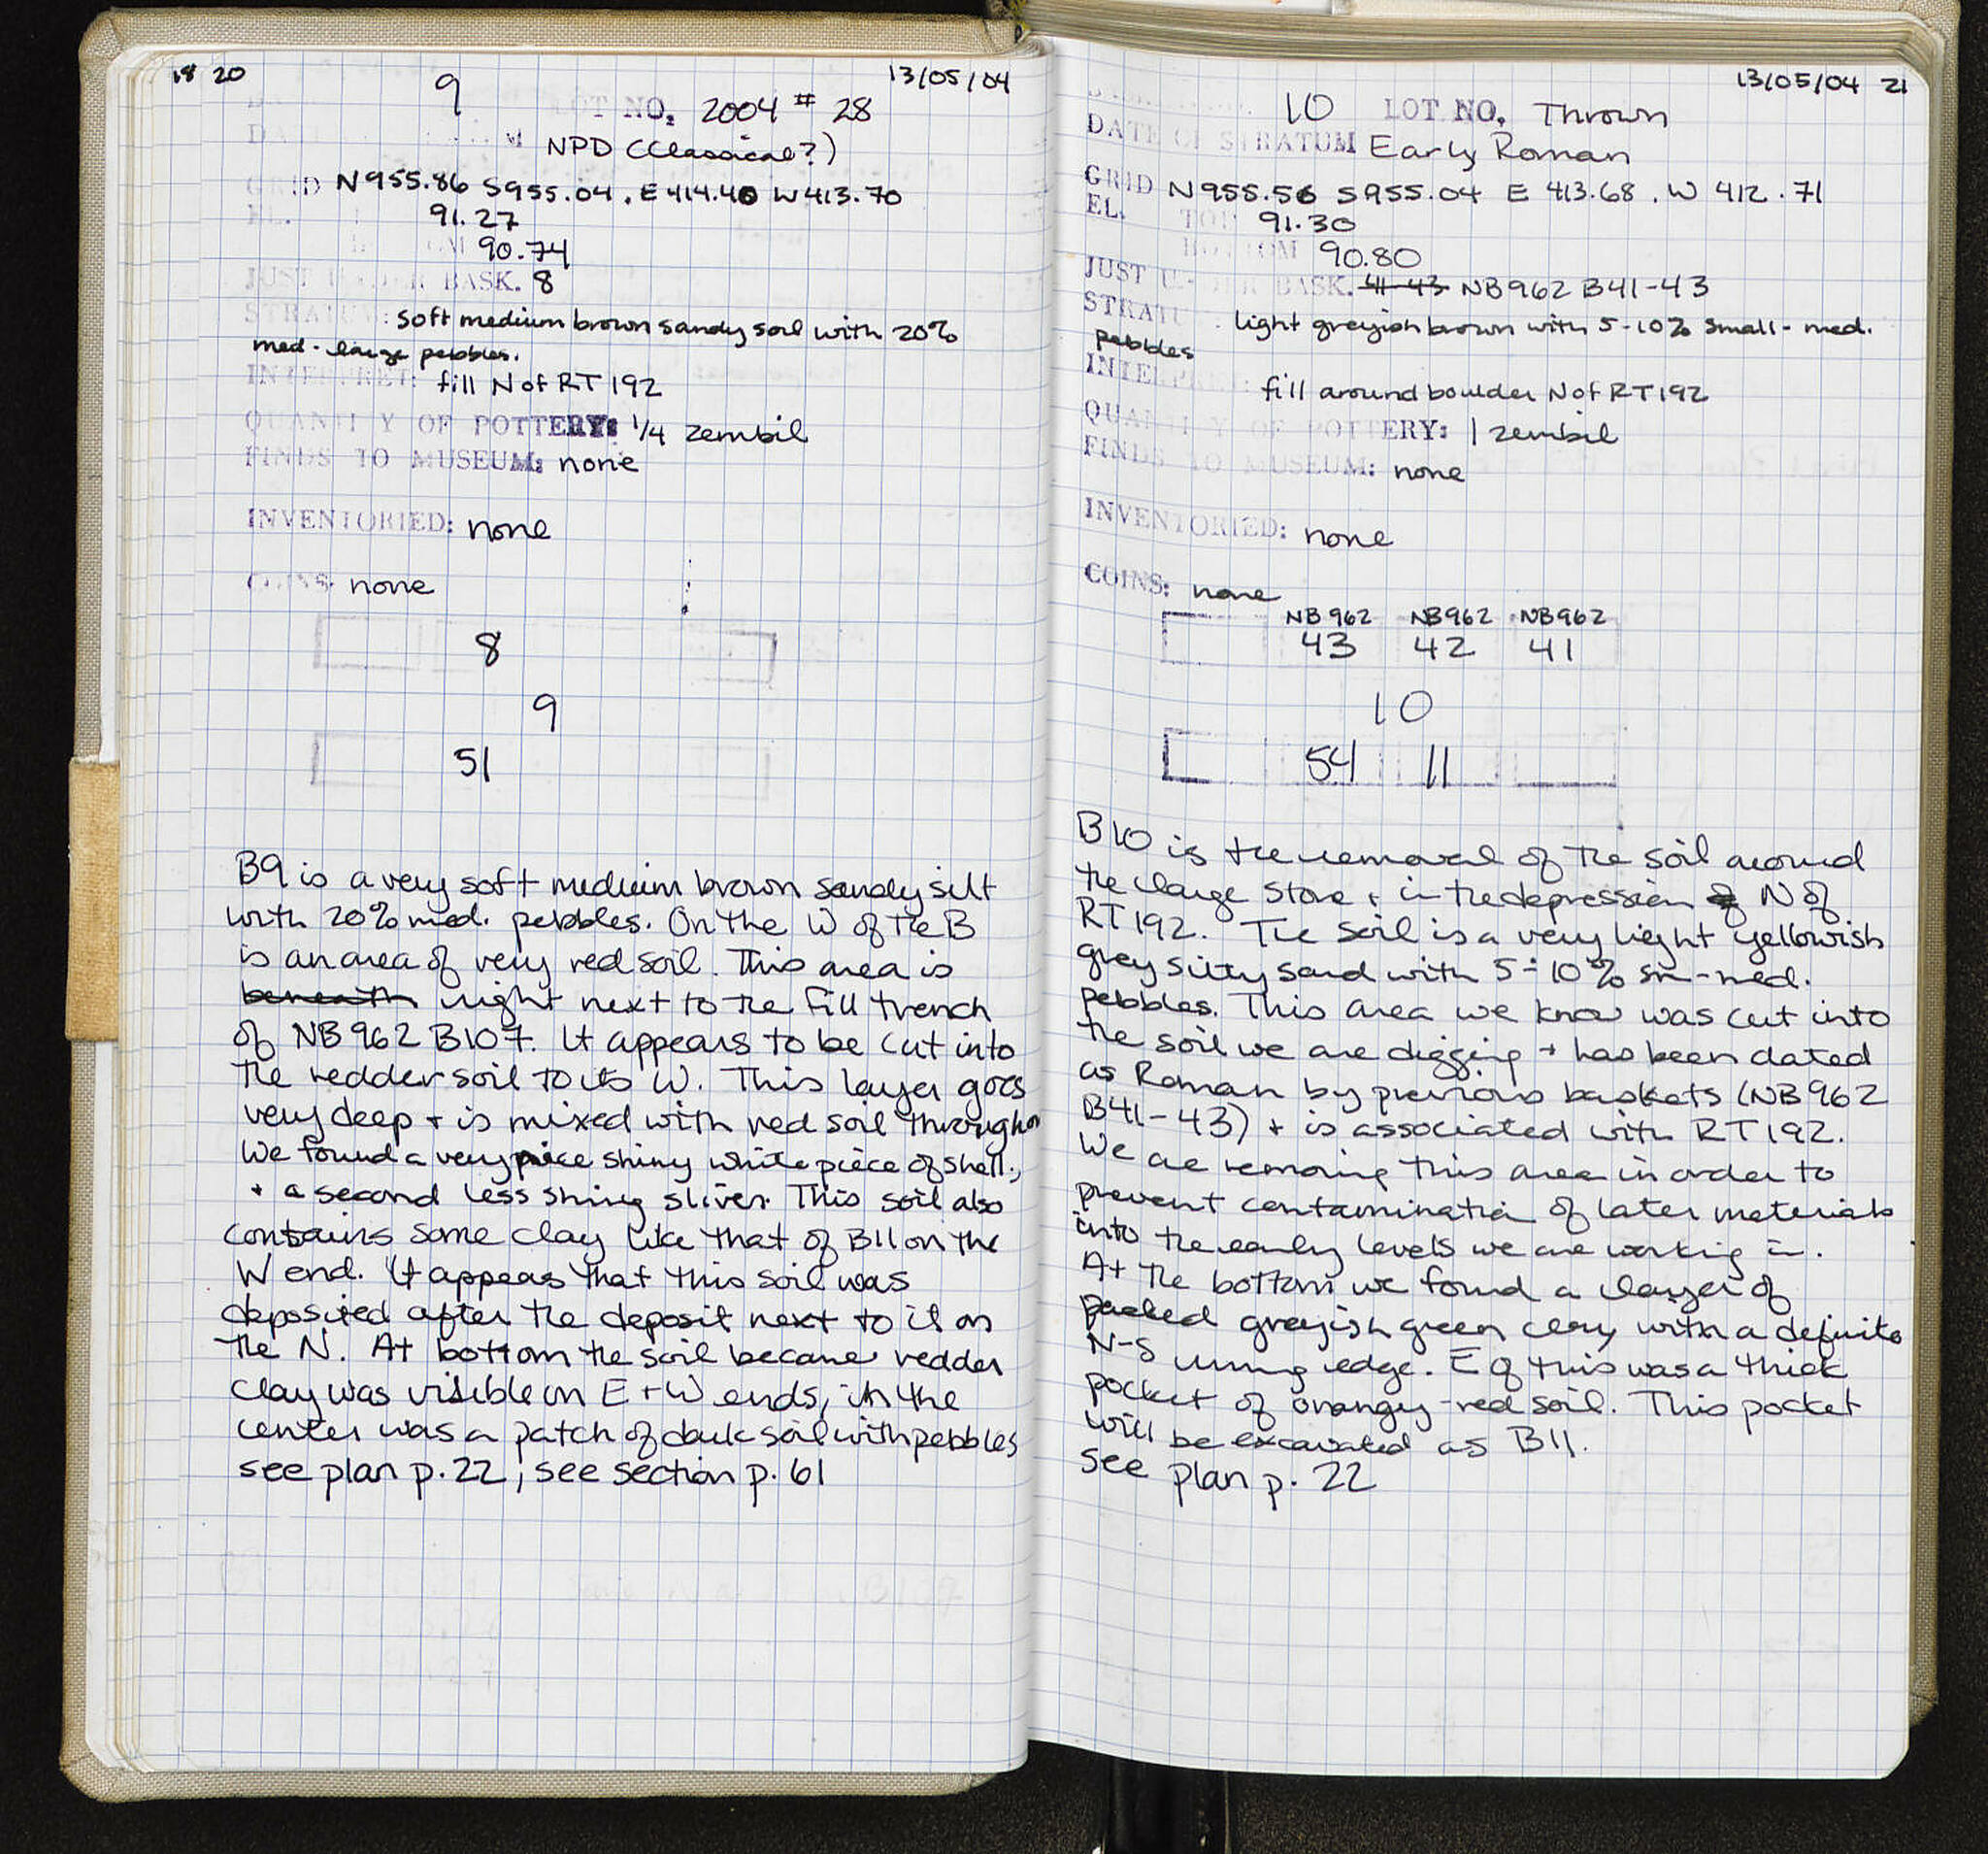 18 20
13/05/04
9 LOT NO. 2004 # 28
NPD (Classical?)
GRID N955.86 S955.04, E414.40 W413.70
EL. 91.27
90.74
JUST UNDER BASK. 8
STRATUM: soft medium brown sandy soil with 20%
med-large pebbles.
INTERPRET: fill N of RT192
QUANTITY OF POTTERY: 1/4 zembil
FINDS TO MUSEUM: none
INVENTORIED: none
COINS: none
8
9
51
B9 is a very soft medium brown sandy silt
with 20% med. pebbles. On the W of the B
is an area of very red soil. This area is
beneath right next to the fill trench
of NB962 B107. It appears to be cut into
the redder soil to its W. This layer goes
very deep + is mixed with red soil throughou
We found a very nice shiny white piece of shell,
+ a second less shiny sliver. This soil also
contains some clay like that of B11 on the
W end. It appears that this soil was
deposited after the deposit next to it on
the N. At bottom the soil became redder
clay was visible on E + W ends, in the
center was a patch of dark soil with pebbles
see plan p.22, see section p. 61
13/05/04 21
10 LOT NO. Thrown
DATE OF STRATUM Early Roman
GRID N955.56 S955.04 E 413.68, W 412.71
EL. TOP 91.30
BOTTOM 90.80
JUST UNDER BASK. 41-43 NB962 B41-43
STRATUM: light greyish brown with 5-10% small-med.
pebbles
INTERPRET: fill around boulder N of RT192
QUANTITY OF POTTERY: 1 zembil
FINDS TO MUSEUM: none
INVENTORIED: none
COINS: none
NB962 NB962 NB962
43 42 41
10
54 11
B10 is the removal of the soil around
the large stone + in the depression of N of
RT192. The soil is a very light yellowish
grey silty sand with 5-10% sm-med.
pebbles. This area we know was cut into
the soil we are digging + has been dated
as Roman by previous baskets (NB962
B41-43) + is associated with RT192.
We are removing this area in order to
prevent contamination of later materials
into the early levels we are working in.
At the bottom we found a layer of
packed greyish green clay with a definite
N-S running edge. E of this was a thick
pocket of orangey-red soil. This pocket
will be excavated as B11.
see plan p. 22